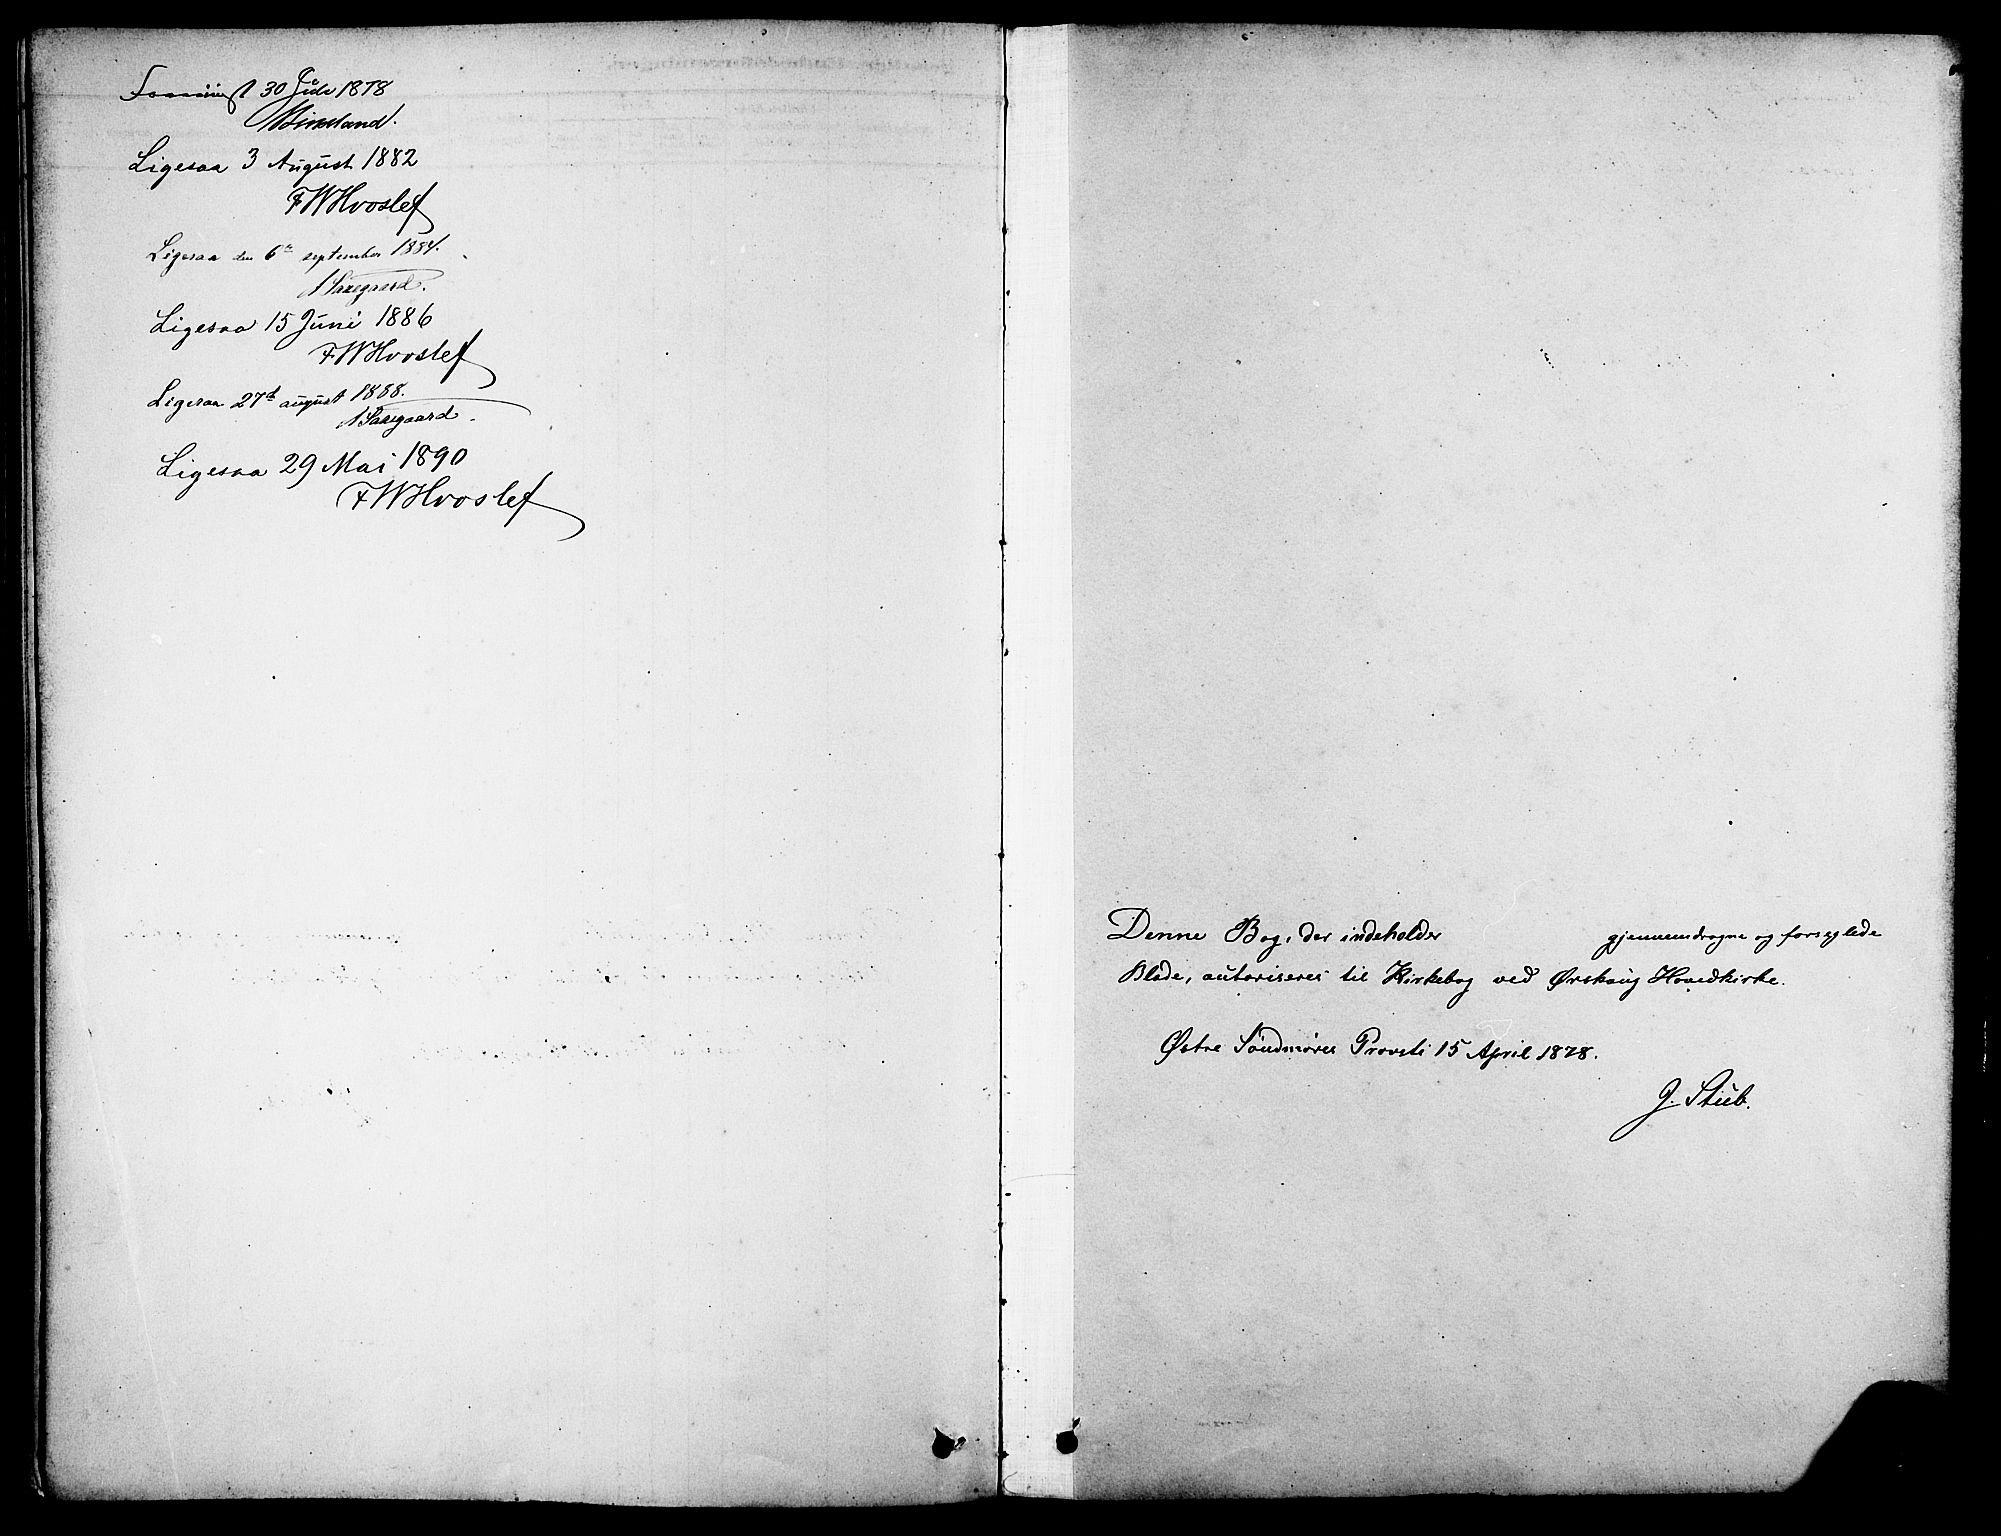 30 Juli 1878
Ligesaa 3 August 1882
FWHvoslef
Ligesaa den 6te september 1884.
N Saxegaard.
Ligesaa 15 Juni 1886
FWHvoslef
Ligesaa 27d august 1888.
N Saxegaard.
Ligesaa 29 Mai 1890
FWHvoslef
Denne Bog, der indeholder gjennemdragne og forseglede
Blade, autoriseres til Kirkebog ved Ørskoug Hovedkirke.
Østre Söndmöres Provsti 15 April 1878.
J. Stub.